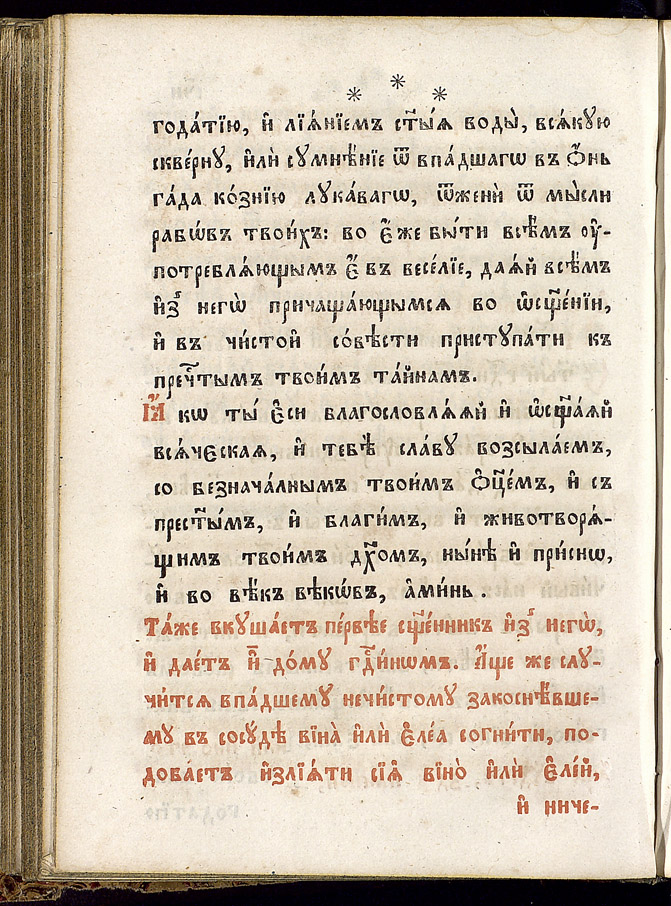 * * *
года́тїю, и҆ лїѧ́нїемъ ст҃ы́ѧ воды̀, всѧ́кꙋю
скве́рнꙋ, и҆лѝ сꙋмнѣ́нїе ѿ впа́дшагѡ въ ѻ҆́нь
га́да ко́знїю лꙋка́вагѡ, ѿженѝ ѿ мы́сли
рабѡ́въ твои́хъ: во є҆́же бы́ти всѣ̑мъ оу҆-
потреблѧ́ющымъ є҆̀ въ весе́лїе, даѧ́й всѣ̑мъ
и҆з̾ негѡ̀ причаща́ющымсѧ во ѡ҆сщ҃е́нїи,
и҆ въ чи́стой со́вѣсти пристꙋпа́ти къ
преч҃тымъ твои́мъ та́йнамъ.
Ꙗ҆́кѡ ты́ є҆сѝ благословлѧ́ѧй и҆ ѡ҆сщ҃а́ѧй
всѧ́чєскаѧ, и҆ тебѣ̀ сла́вꙋ возсыла́емъ,
со безнача́лнымъ твои́мъ ѻ҆ц҃е́мъ, и҆ съ
прест҃ы́мъ, и҆ благи́мъ, и҆ животворѧ́-
щимъ твои́мъ дх҃омъ, ны́нѣ и҆ при́снѡ,
и҆ во вѣ́къ вѣкѡ́въ, а҆ми́нь.
Та́же вкꙋша́етъ пе́рвѣе сщ҃е́нникъ и҆з̾ негѡ̀,
и҆ дае́тъ и҆̀ до́мꙋ гд҃и́нѡмъ. А҆́ще же слꙋ-
чи́тсѧ впа́дшемꙋ нечи́стомꙋ закоснѣ́вше-
мꙋ въ сосꙋ́дѣ вїна̀ и҆лѝ є҆ле́а согни́ти, по-
доба́етъ и҆злїѧ́ти сїѐ вїно̀ и҆лѝ є҆ле́й,
и҆ ниче-